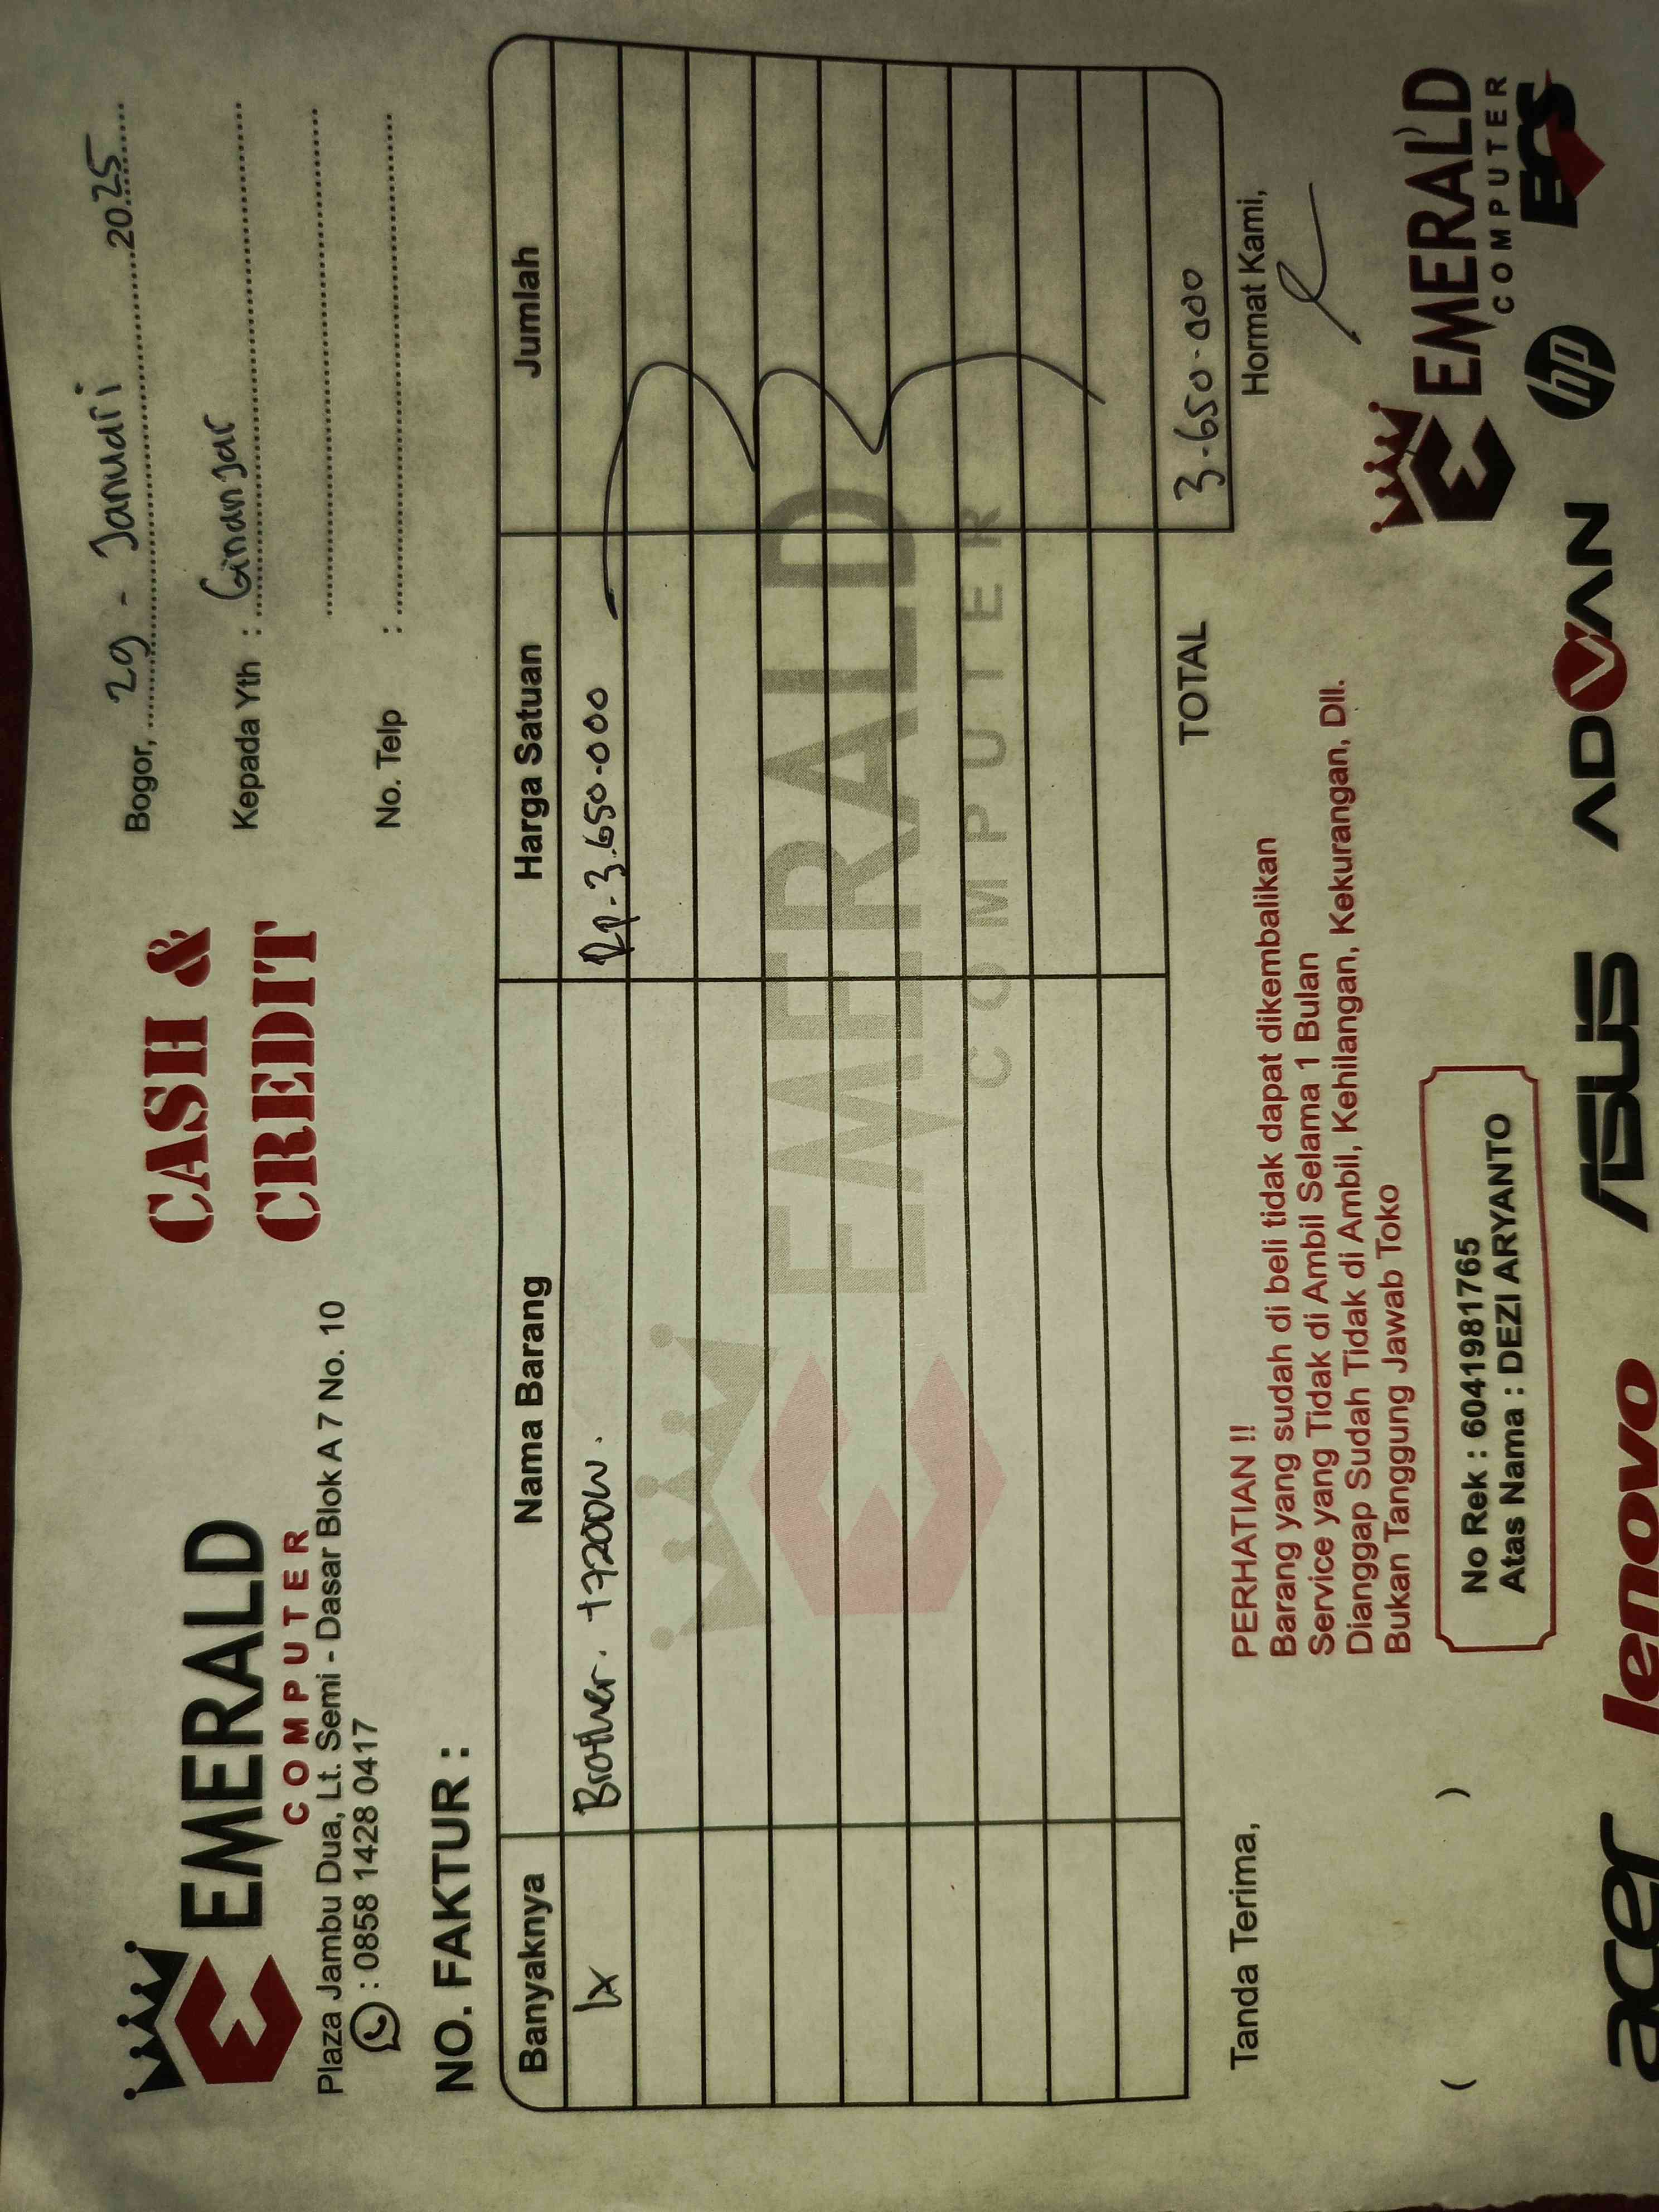 EMERALD
COMPUTER
Plaza Jambu Dua, Lt. Semi - Dasar Blok A 7 No. 10
: 0858 1428 0417
CASH &
CREDIT
Bogor, 29 - Januari 2025
Kepada Yth : Ginanjar
No. Telp :
NO. FAKTUR :
Banyaknya Nama Barang Harga Satuan Jumlah
1x Brother. T720DW. Rp. 3.650.000
EMERALD
COMPUTER
TOTAL 3.650.000
Tanda Terima,
( )
PERHATIAN !!
Barang yang sudah di beli tidak dapat dikembalikan
Service yang Tidak di Ambil Selama 1 Bulan
Dianggap Sudah Tidak di Ambil, Kehilangan, Kekurangan, Dll.
Bukan Tanggung Jawab Toko
No Rek : 6041981765
Atas Nama : DEZI ARYANTO
Hormat Kami,
EMERALD
COMPUTER
acer lenovo ASUS ADVAN hp ECS